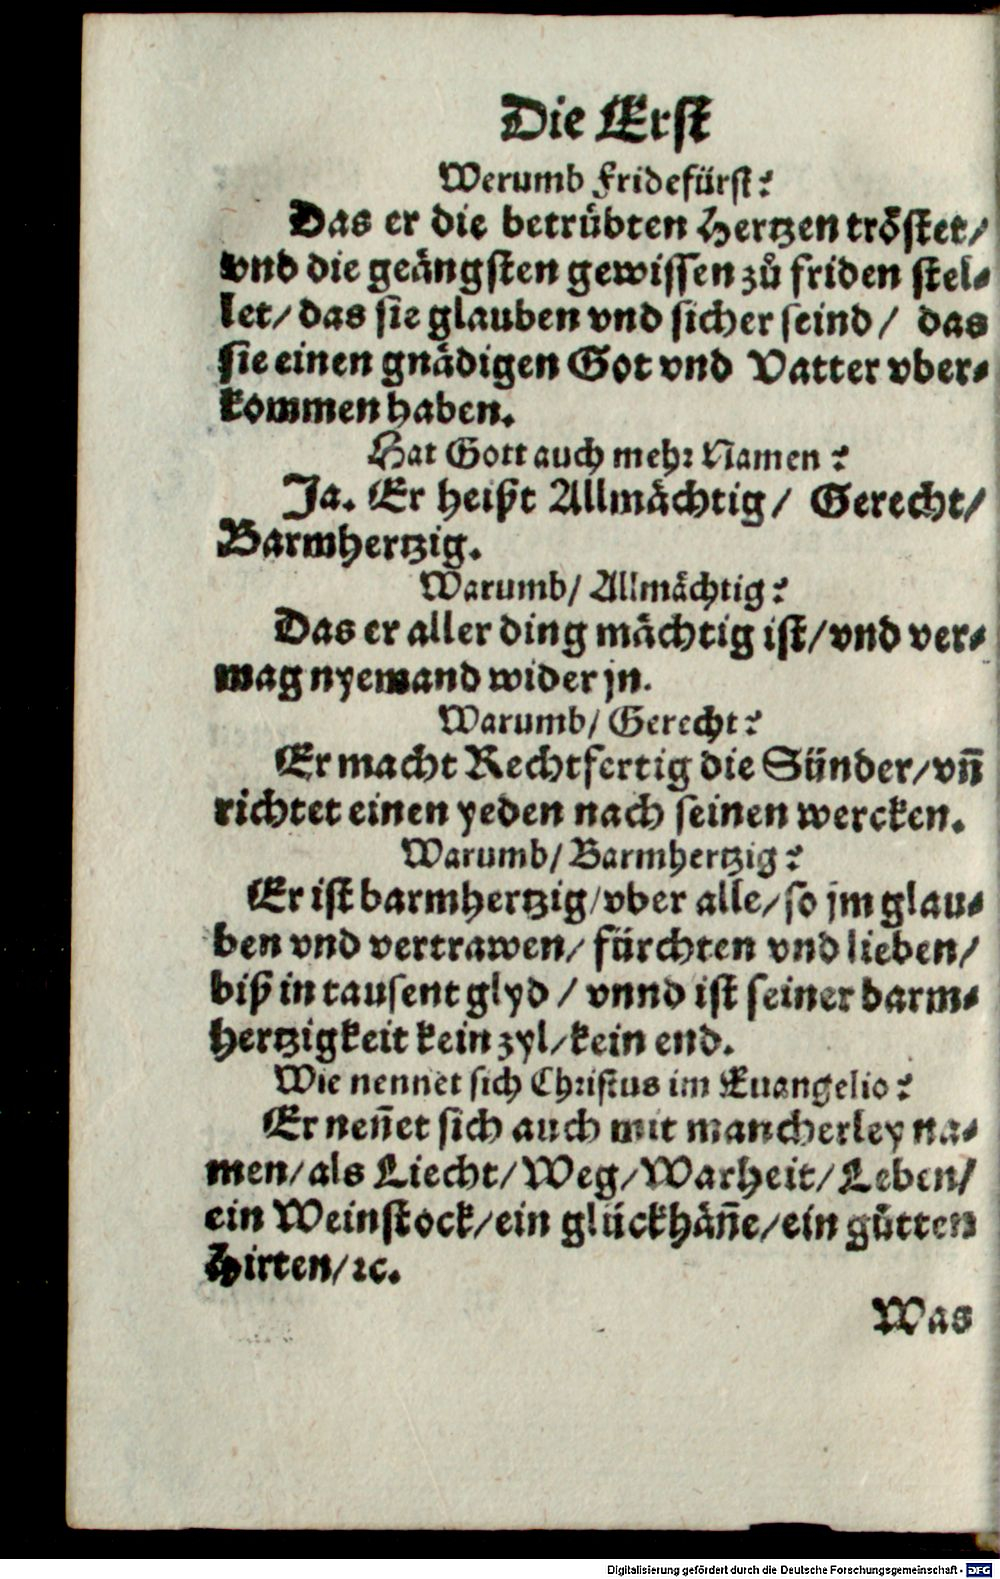 Die Erst
Werumb Fridefürst?
Das er die betrübten Hertzen tröstet/
vnd die geängsten gewissen zů friden stel⸗
let/ das sie glauben vnd sicher seind/ das
sie einen gnädigen Got vnd Vatter vber⸗
kommen haben.
Hat Gott auch mehr Namen?
Ja. Er heißt Allmächtig/ Gerecht/
Barmhertzig.
Warumb/ Allmächtig?
Das er aller ding mächtig ist/ vnd ver⸗
mag nyemand wider jn.
Warumb/ Gerecht?
Er macht Rechtfertig die Sünder/ vñ
richtet einen yeden nach seinen wercken.
Warumb/ Barmhertzig?
Er ist barmhertzig/ vber alle/ so jm glau⸗
ben vnd vertrawen/ fürchten vnd lieben/
biß in tausent glyd/ vnnd ist seiner barm⸗
hertzigkeit kein zyl/ kein end.
Wie nennet sich Christus im Euangelio?
Er neñet sich auch mit mancherley na⸗
men/ als Liecht/ Weg/ Warheit/ Leben/
ein Weinstock/ ein glückhäñe/ ein gůtten
Hirten/ ꝛc.
Was
Digitalisierung gefördert durch die Deutsche Forschungsgemeinschaft - DFG